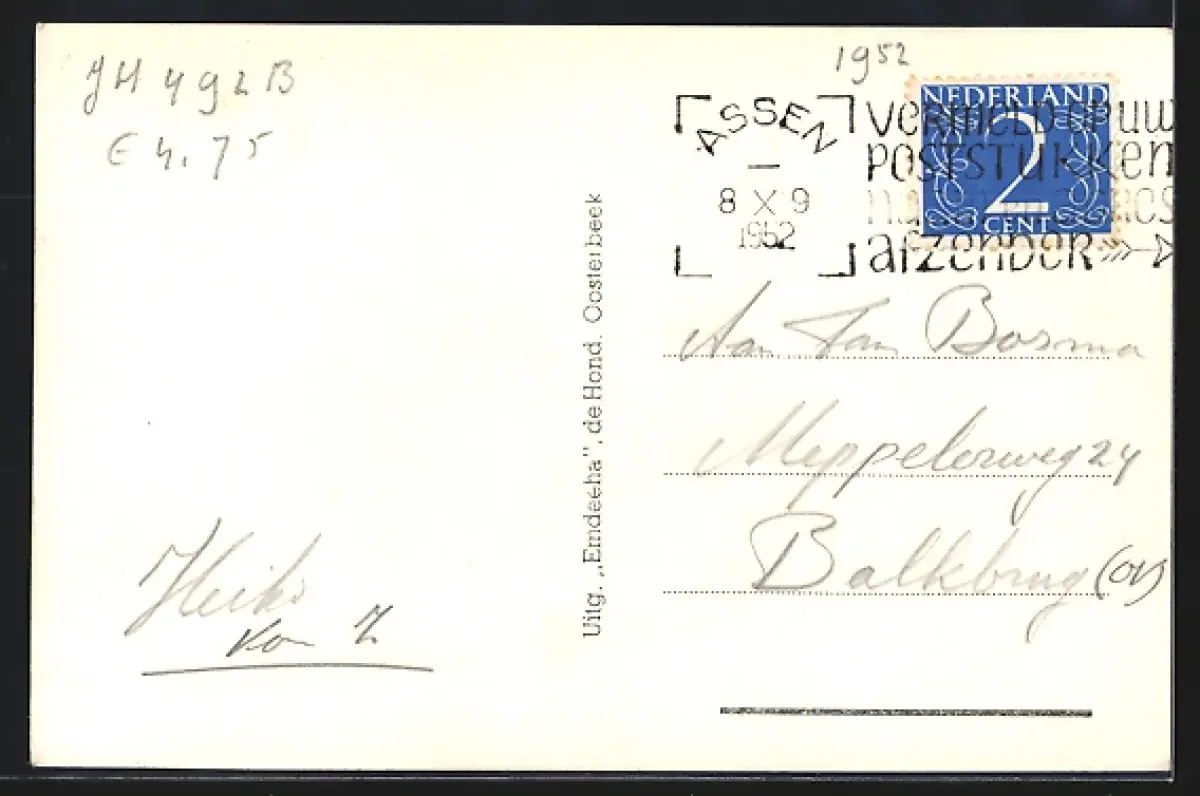 JH 492 B
€ 4.75
1952
ASSEN
8 X 9
1952
VERMELD OP UW
POSTSTUKKEN
afzender
NEDERLAND
2
CENT
Uitg. „Emdeeha", de Hond. Oosterbeek
Aan Fam Bosma
Meppelerweg 24
Balkbrug (OV)
Heiko
v Z